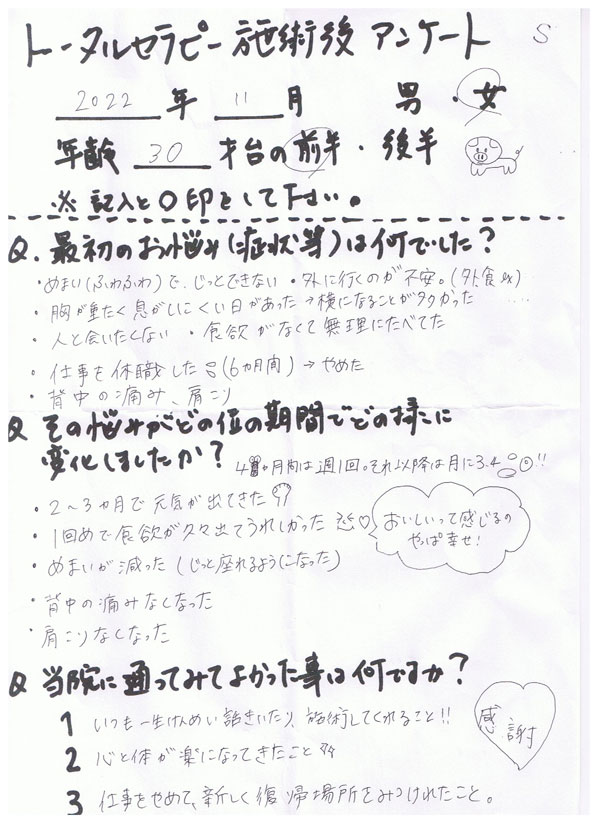 トータルセラピー施術後 アンケート S
2022年 11月 男・女
年齢 30 才台の前半・後半
※記入と〇印をして下さい。
Q. 最初のお悩み(症状等)は何でした?
・めまい(ふわふわ)で、じっとできない ・外に行くのが不安。(外食ex)
・胸が重たく息がしにくい日があった→横になることが多かった
・人と会いたくない ・食欲がなくて無理にたべてた
・仕事を休職した(6ヵ月間)→やめた
・背中の痛み、肩こり
Q その悩みがどの位の期間でどの様に
変化しましたか?
4ヶ月間は週1回。それ以降は月に3.4回!!
・2~3ヵ月で元気が出てきた
・1回めで食欲が久々出てうれしかった
おいしいって感じるの
やっぱ幸せ!
・めまいが減った(じっと座れるようになった)
・背中の痛みなくなった
・肩こりなくなった
Q 当院に通ってみてよかった事は何ですか?
1 いつも一生けんめい話きいたり、施術してくれること!!
感謝
2 心と体が楽になってきたこと
3 仕事をやめて、新しく復帰場所をみつけれたこと。